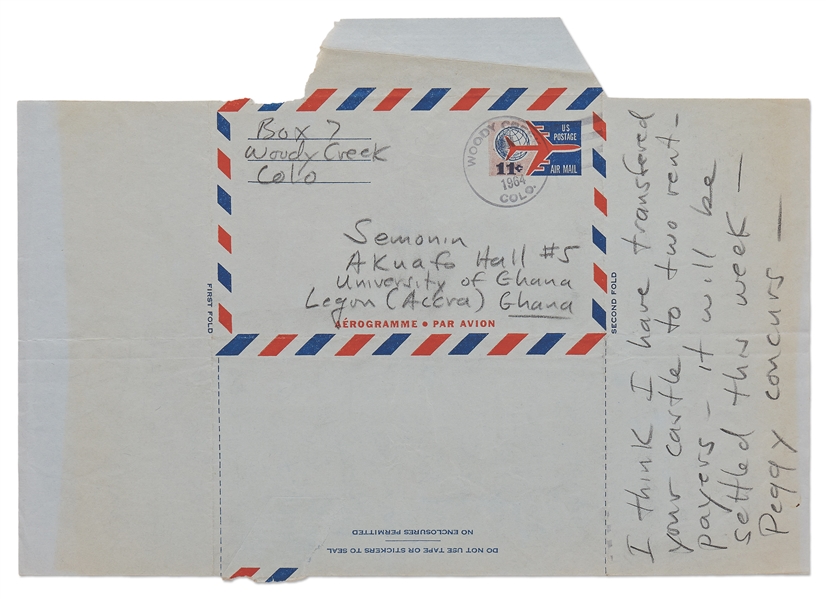 Box 7
Woody Creek
Colo
WOODY CREEK
1964
COLO.
US
POSTAGE
11¢
AIR MAIL
Semonin
Akuafo Hall #5
University of Ghana
Legon (Accra) Ghana
AÉROGRAMME • PAR AVION
FIRST FOLD
SECOND FOLD
I think I have transfered
your castle to two rent-
payers - it will be
settled this week -
Peggy concurs -
DO NOT USE TAPE OR STICKERS TO SEAL
NO ENCLOSURES PERMITTED